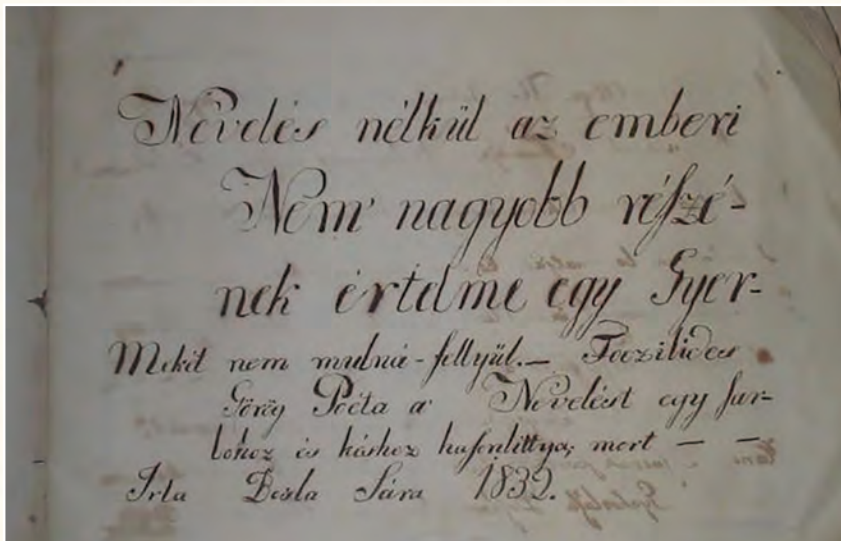 Nevelés nélkül az emberi
Nem nagyobb réſzé-
nek értelme egy Gyer-
Mekét nem mulná-fellyül. — Foczilides
Görög Poéta a Nevelést egy sar-
lóhoz és káshoz hasonlittya; mert — —
Irta Sára 1832.